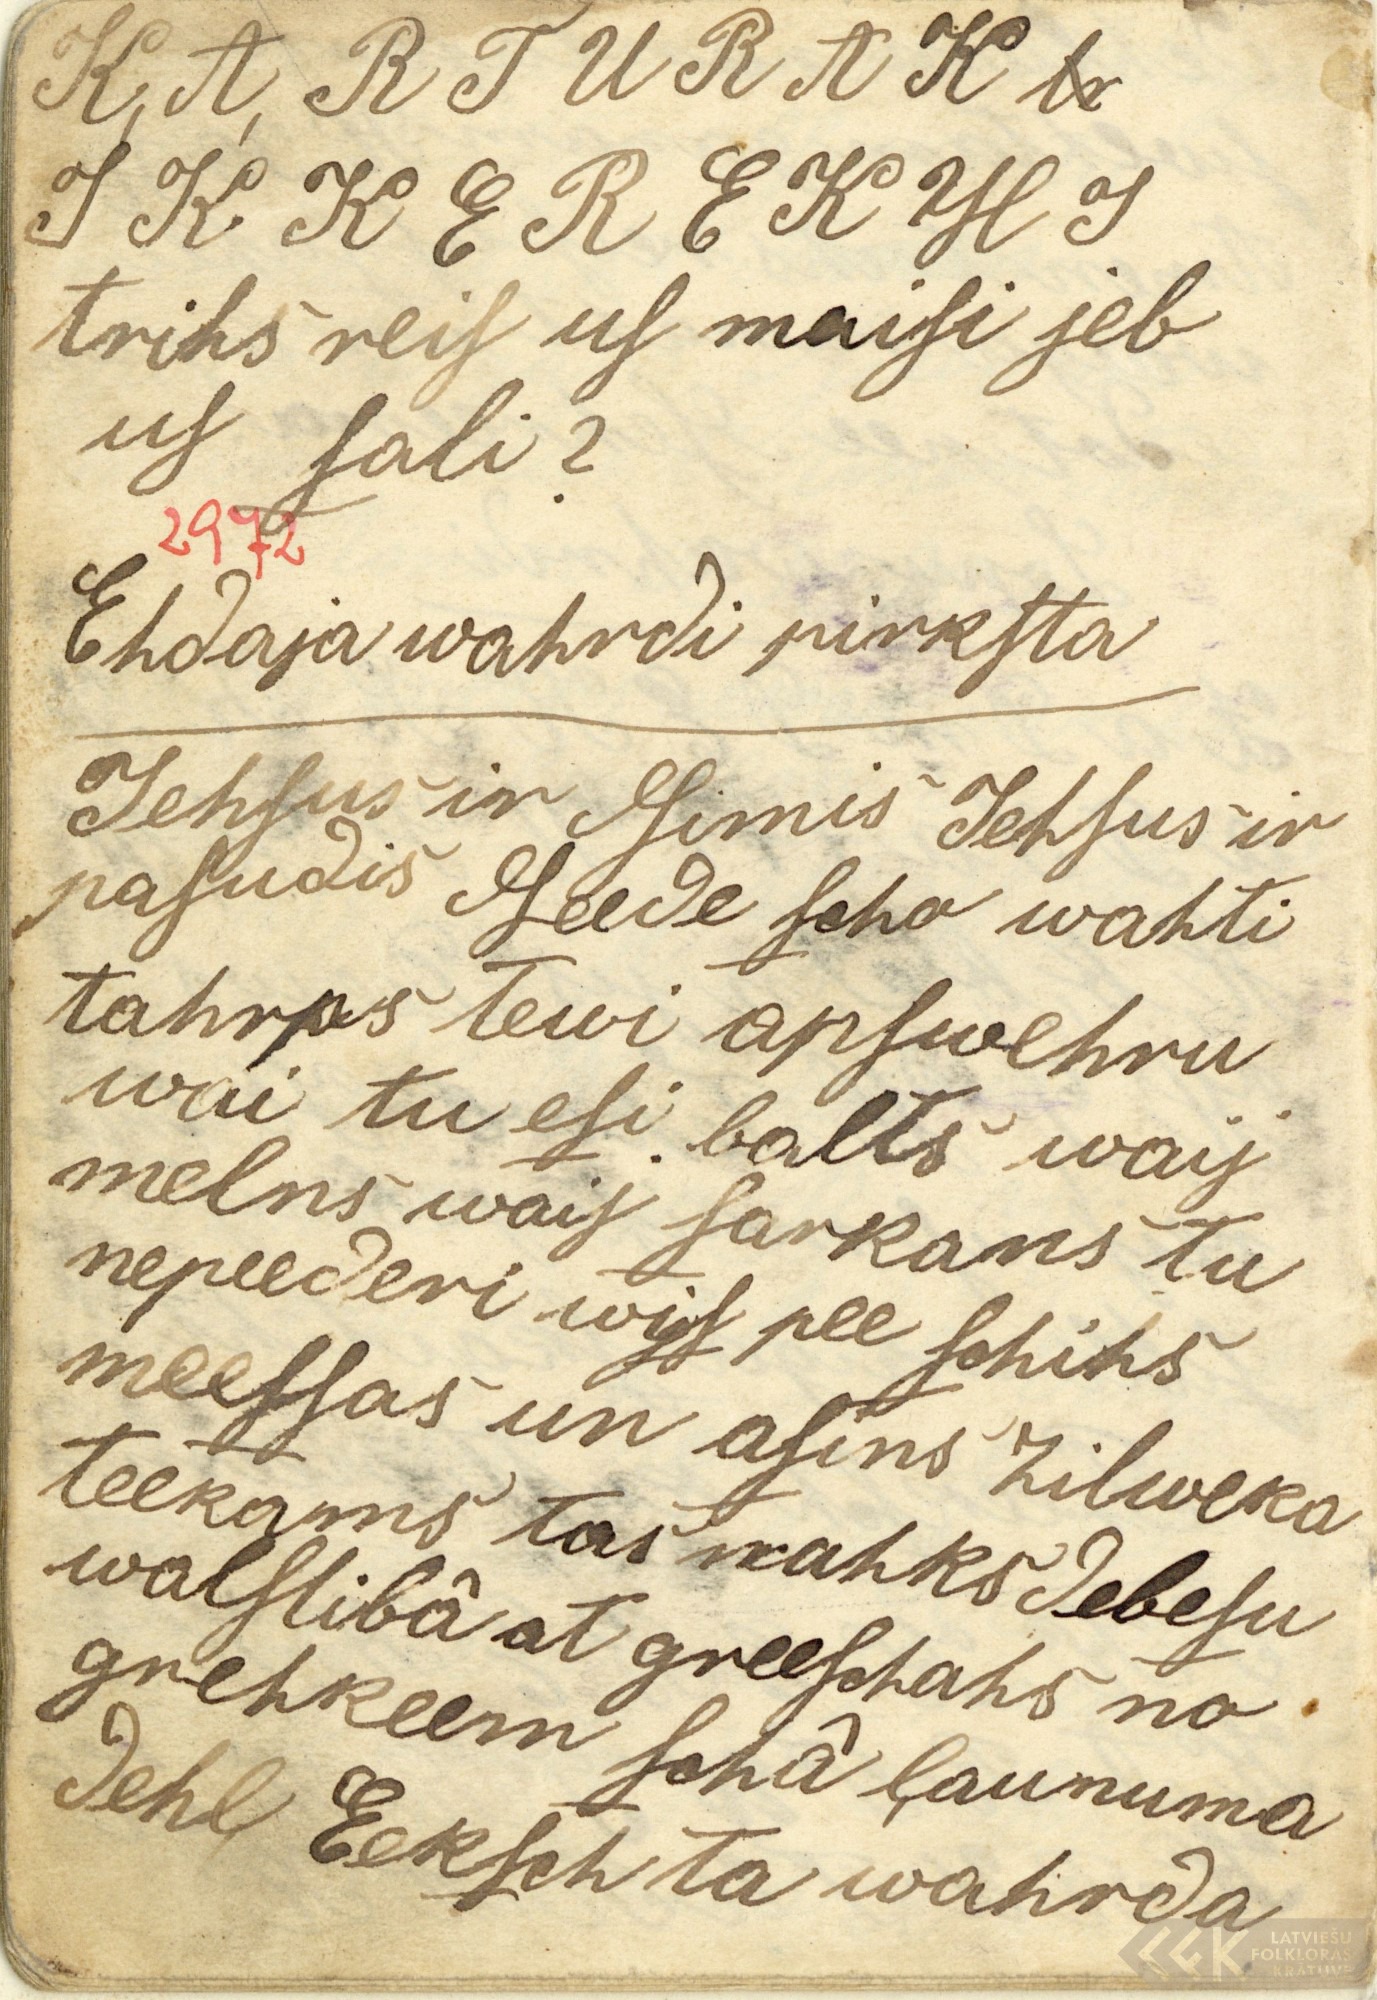 K, A, R T U R A K
I K. K E R E K H I
trihs reiſ uſ maiſi jeb
uſ ſali?
2972
Ehdaja wahrdi pirkſta
Jehſus ir Dſimis Jehſus ir
paſudis Dſeede ſcho wahti
tahrps tewi apſwehru
wai tu eſi balts waij
melns waij ſarkans tu
nepeederi wiſſ pee ſchihs
meeſſas un aſins zilweka
teekams tas nahks debeſu
walſtibâ at greeſchahs no
grehkeem ſchâ launuma
dehļ Eekſch ta wahrda
LATVIEŠU
FOLKLORAS
KRĀTUVE